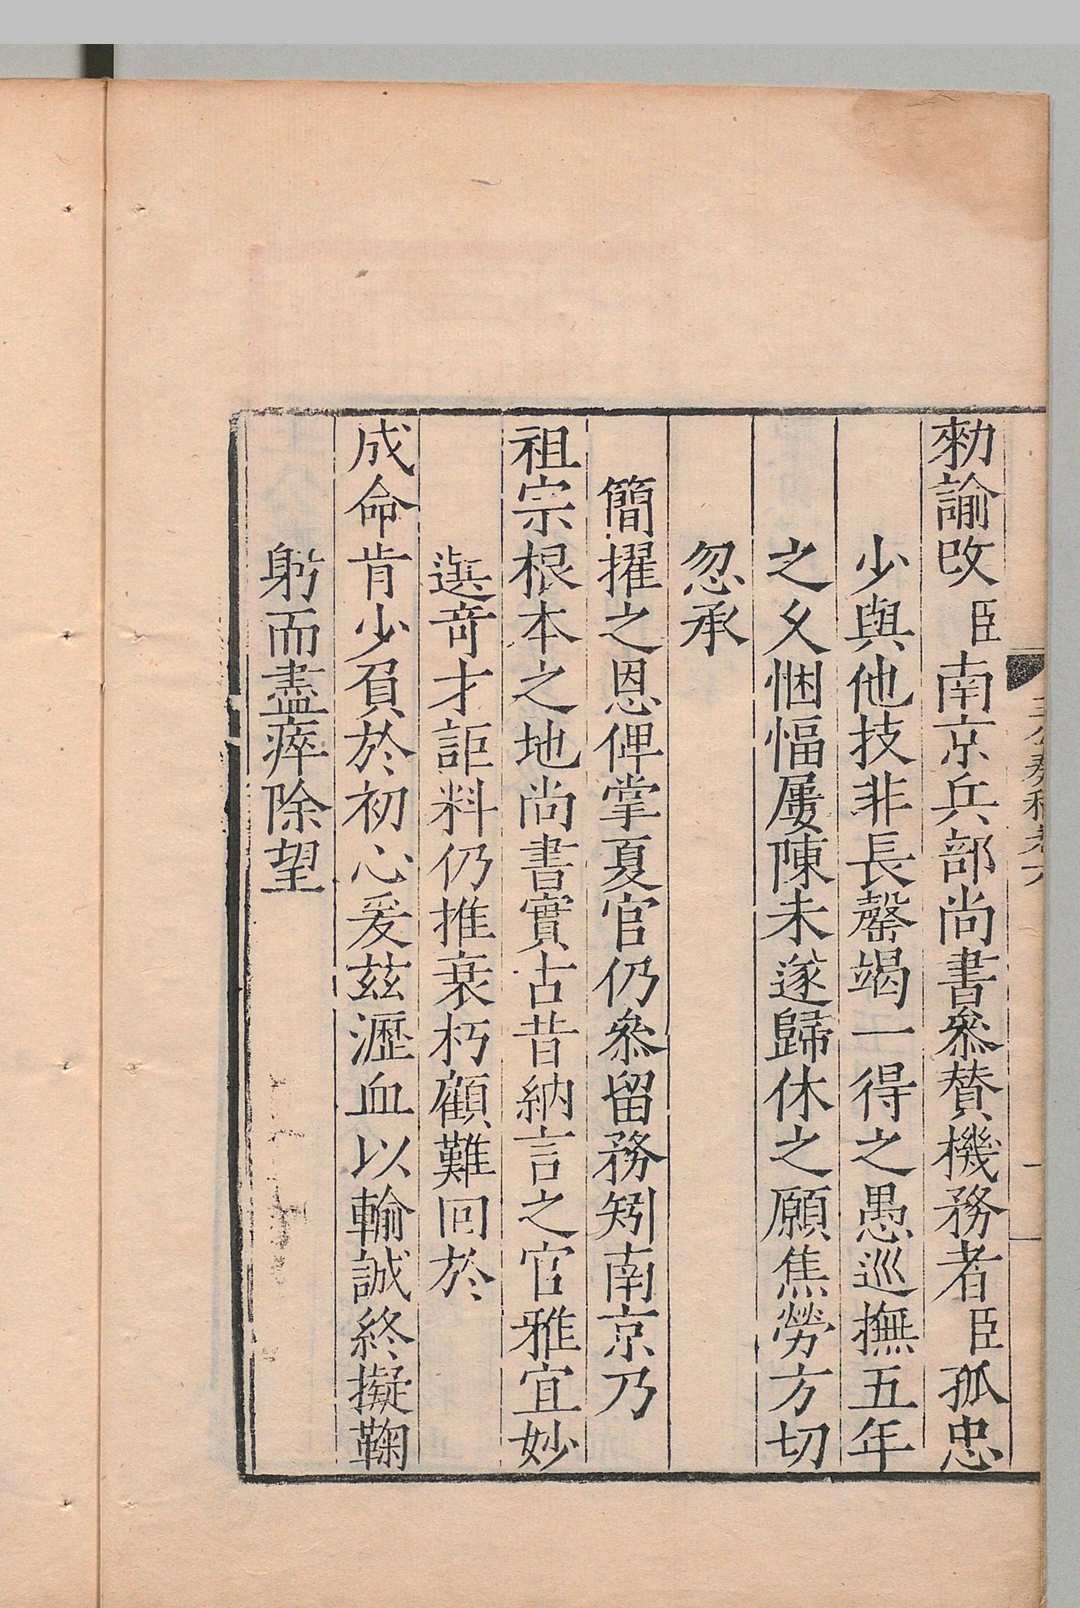 王公奏稿卷六
勑諭改臣南京兵部尚書叅賛機務者臣孤忠
少與他技非長罄竭一得之愚巡撫五年
之久悃愊屢陳未遂歸休之願焦勞方切
忽承
簡擢之恩俾掌夏官仍叅留務矧南京乃
祖宗根本之地尚書實古昔納言之官雅宜妙
選竒才詎料仍推衰朽顧難回於
成命肯少負於初心爰茲瀝血以輸誠終擬鞠
躬而盡瘁除望